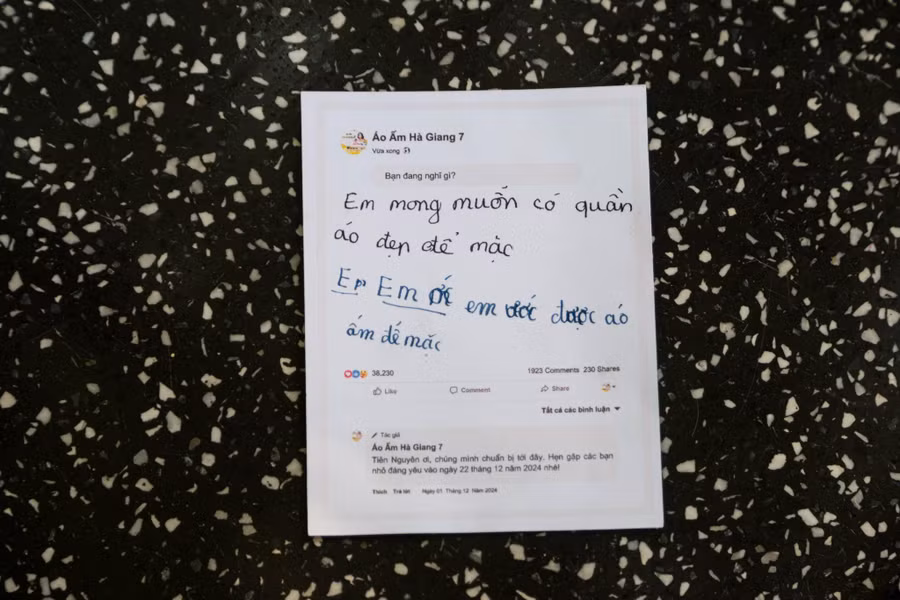 Áo Ấm Hà Giang 7
Vừa xong
Bạn đang nghĩ gì?
Em mong muốn có quần
áo đẹp để mặc
Em em ước được áo
ấm để mặc
38,230 1923 Comments 230 Shares
Like Comment Share
Tất cả các bình luận
Tác giả
Áo Ấm Hà Giang 7
Tiên Nguyên ơi, chúng mình chuẩn bị tới đây. Hẹn gặp các bạn
nhỏ đáng yêu vào ngày 22 tháng 12 năm 2024 nhé!
Thích Trả lời Ngày 01 Tháng 12 Năm 2024